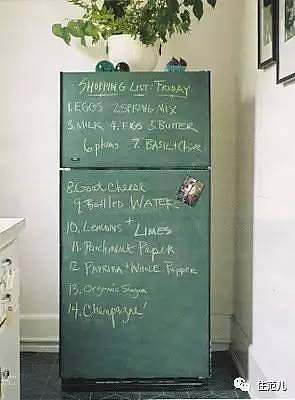 SHOPPING LIST: FRIDAY
1. EGGS 2. SPRING MIX
3. MILK 4. FIGS 5. BUTTER
6. plums 7. BASIL + Chive
8. Goat Cheese
9. Bottled WATER
10. LEMONS + LIMES
11. Parchment Paper
12. PAPRIKA + WHOLE Pepper
13. Organic Sugar
14. Champagne!
住范儿